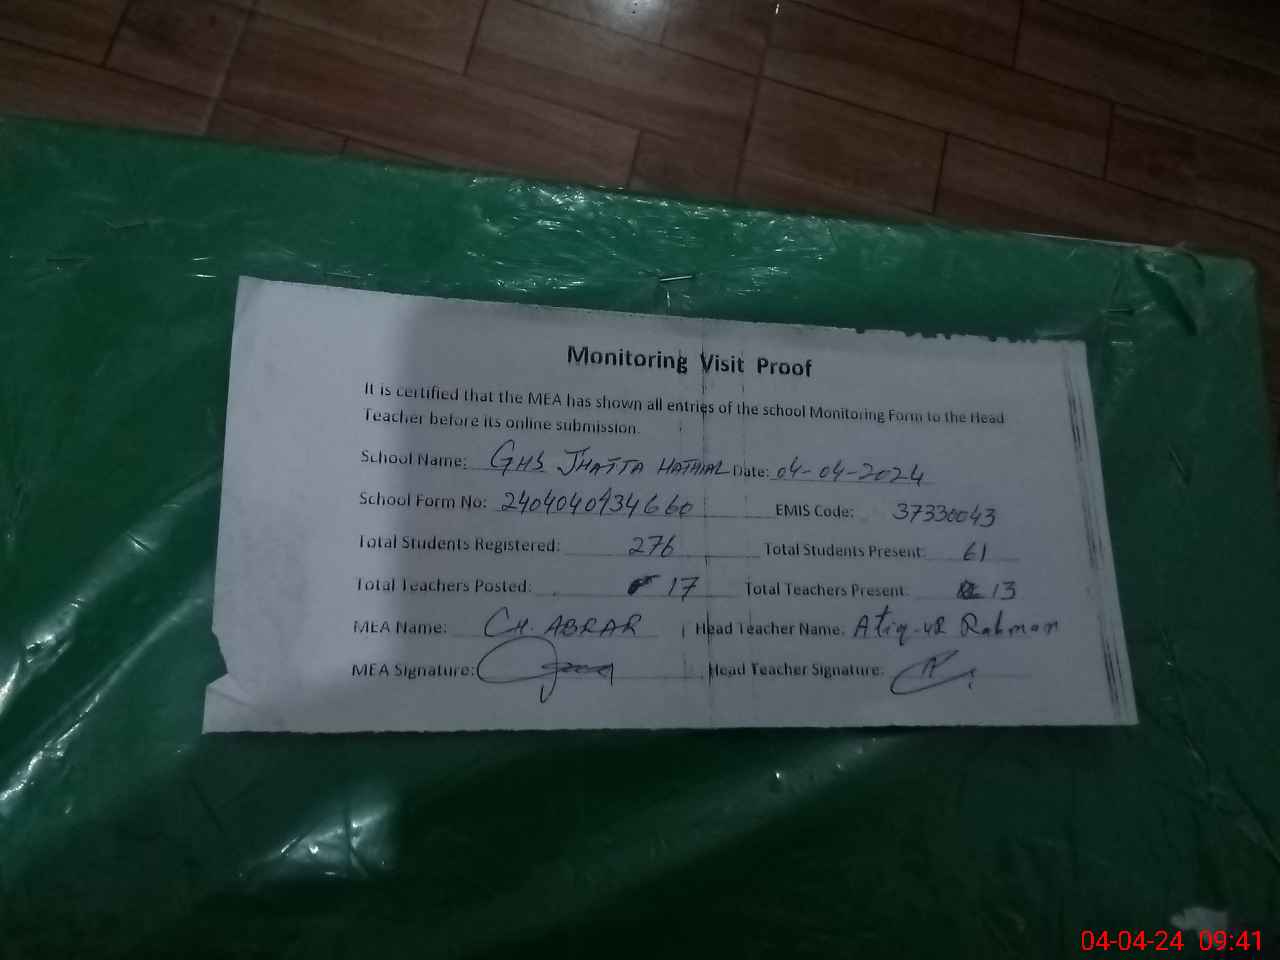 Monitoring Visit Proof
It is certified that the MEA has shown all entries of the school Monitoring Form to the Head
Teacher before its online submission.
School Name: GHS JHATTA HATHIAL Date: 04-04-2024
School Form No: 2404040434660 EMIS Code: 37330043
Total Students Registered: 276 Total Students Present: 61
Total Teachers Posted: 17 Total Teachers Present: 13
MEA Name: CH. ABRAR Head Teacher Name: Atiq-uR Rahman
MEA Signature: Head Teacher Signature:
04-04-24 09:41